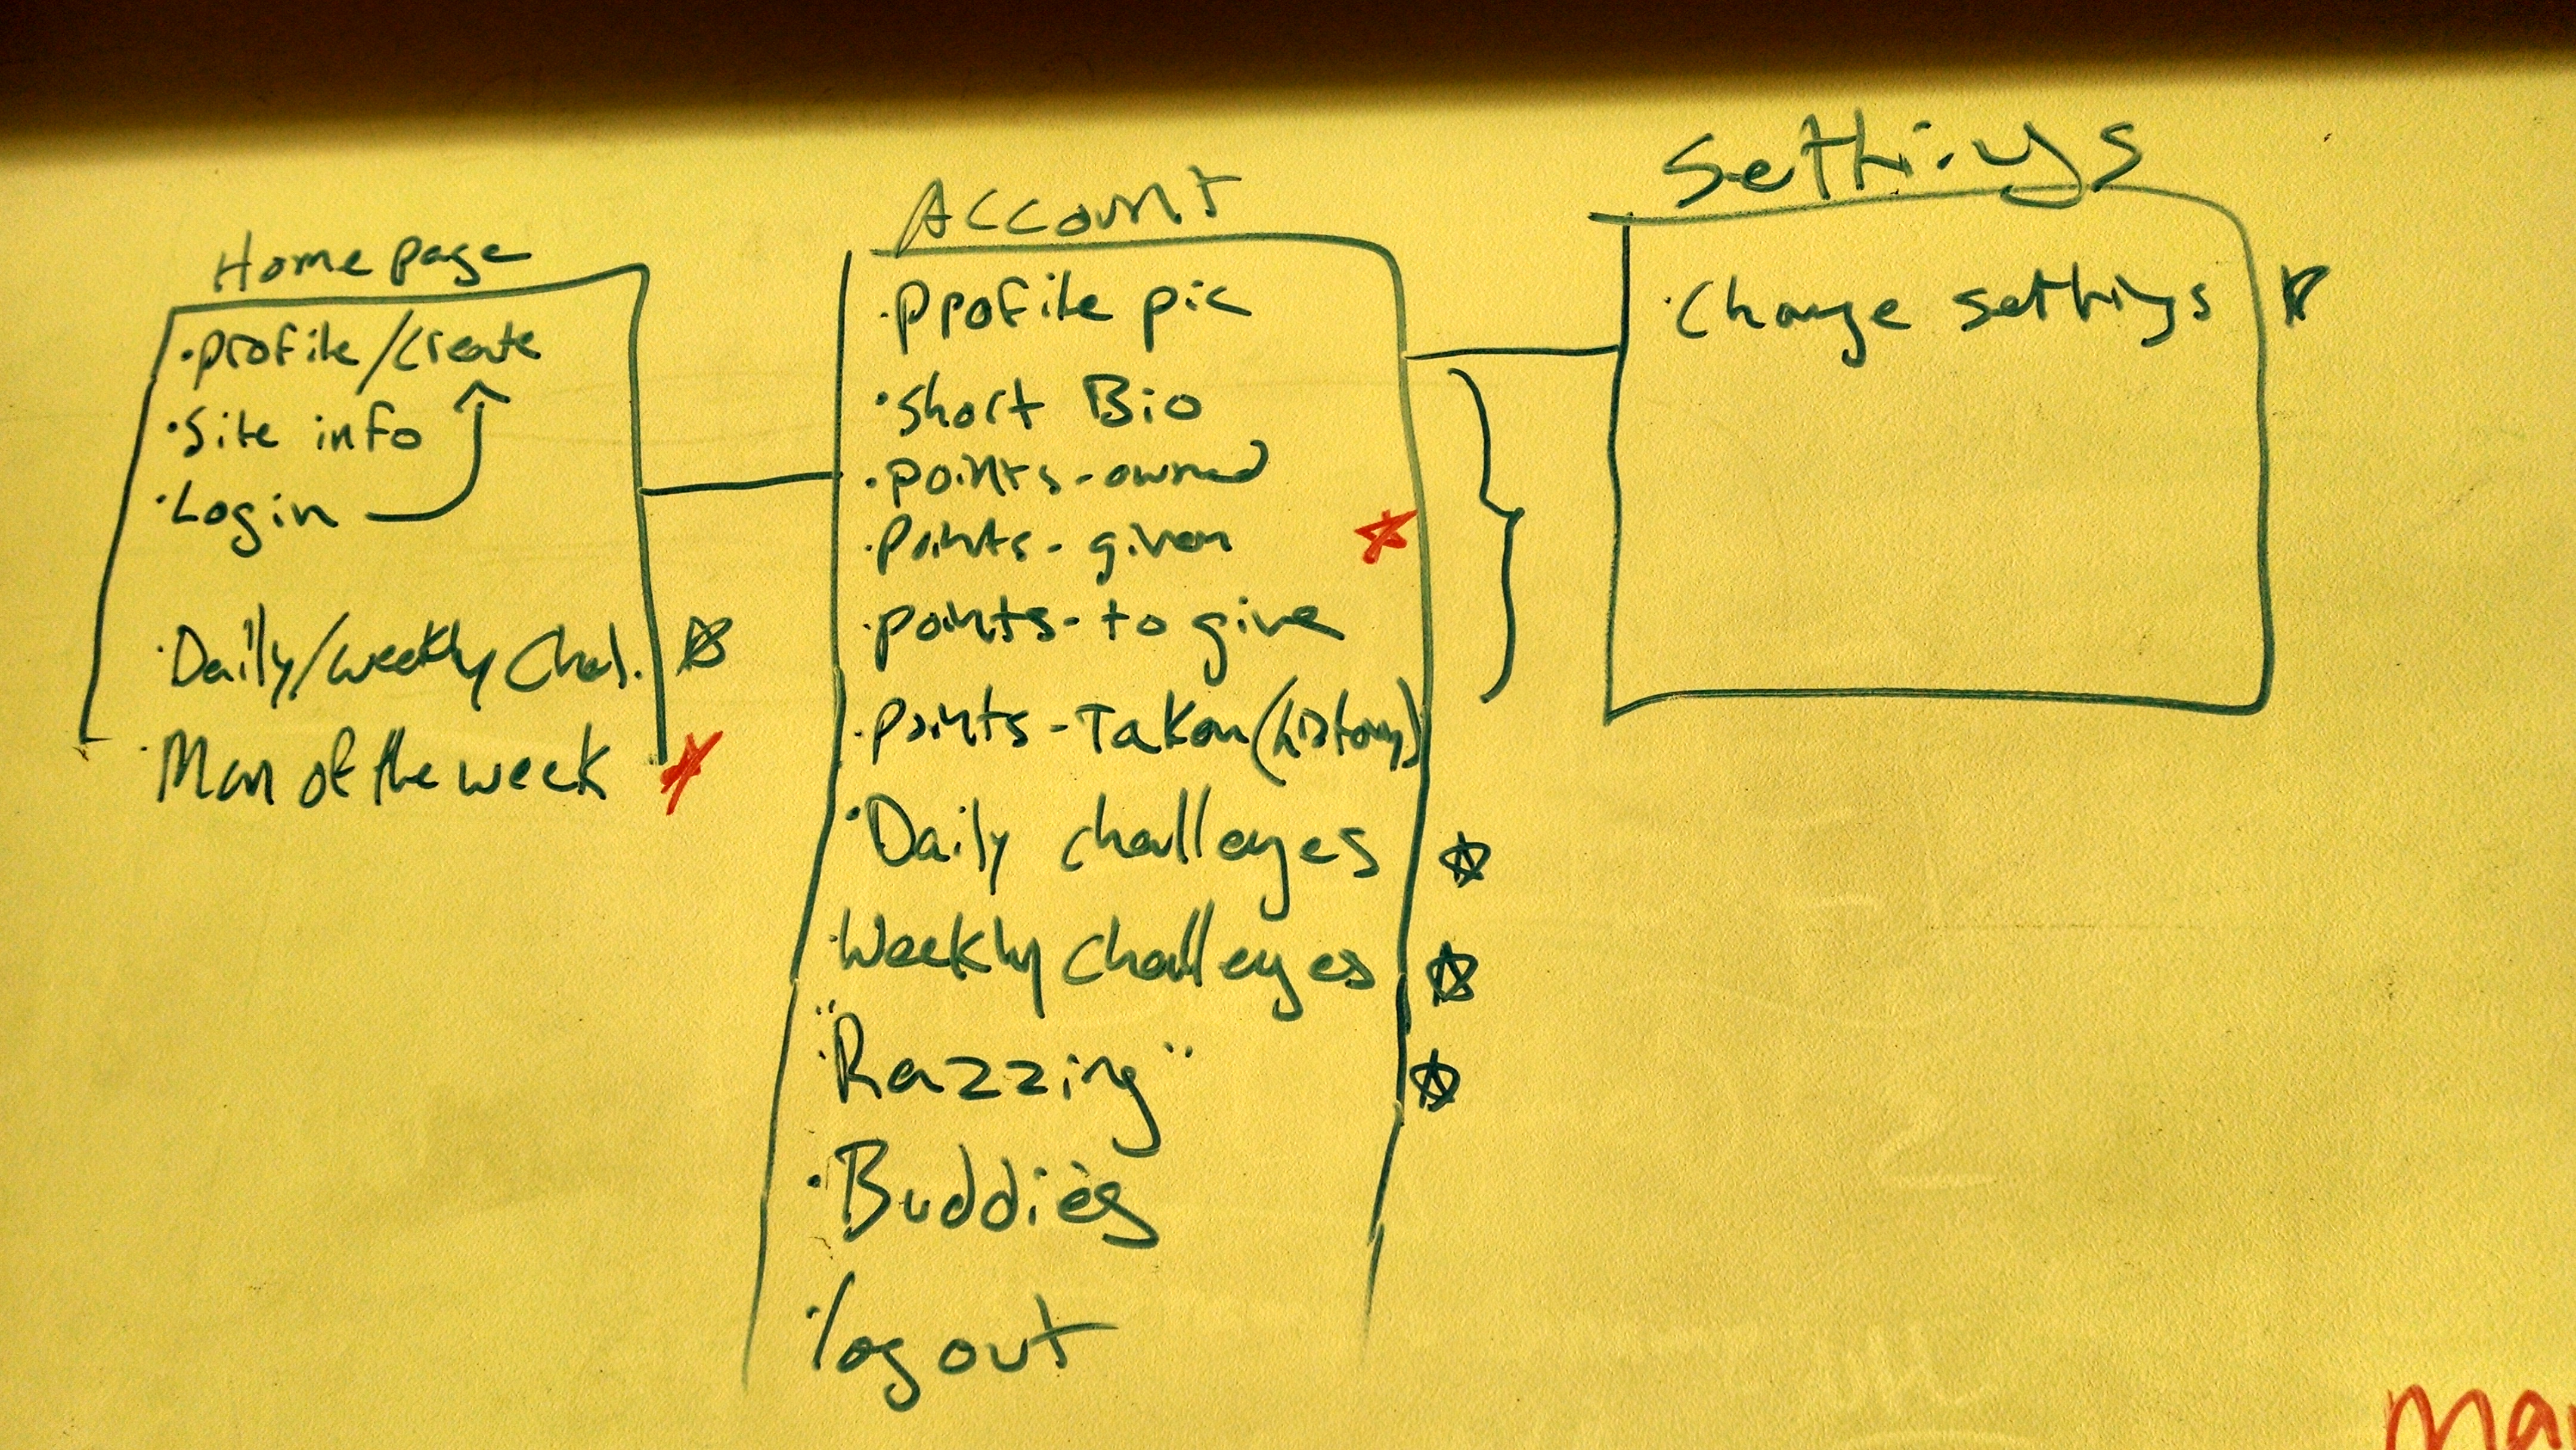 Home page
·profile/create
·Site info
·Login
·Daily/weekly Chal.
·Man of the week
Account
·Profile pic
·Short Bio
·points-owned
·Points-given
·points-to give
·points-Taken (history)
·Daily challenges
·Weekly challenges
·"Razzing"
·Buddies
·log out
Settings
·Change settings